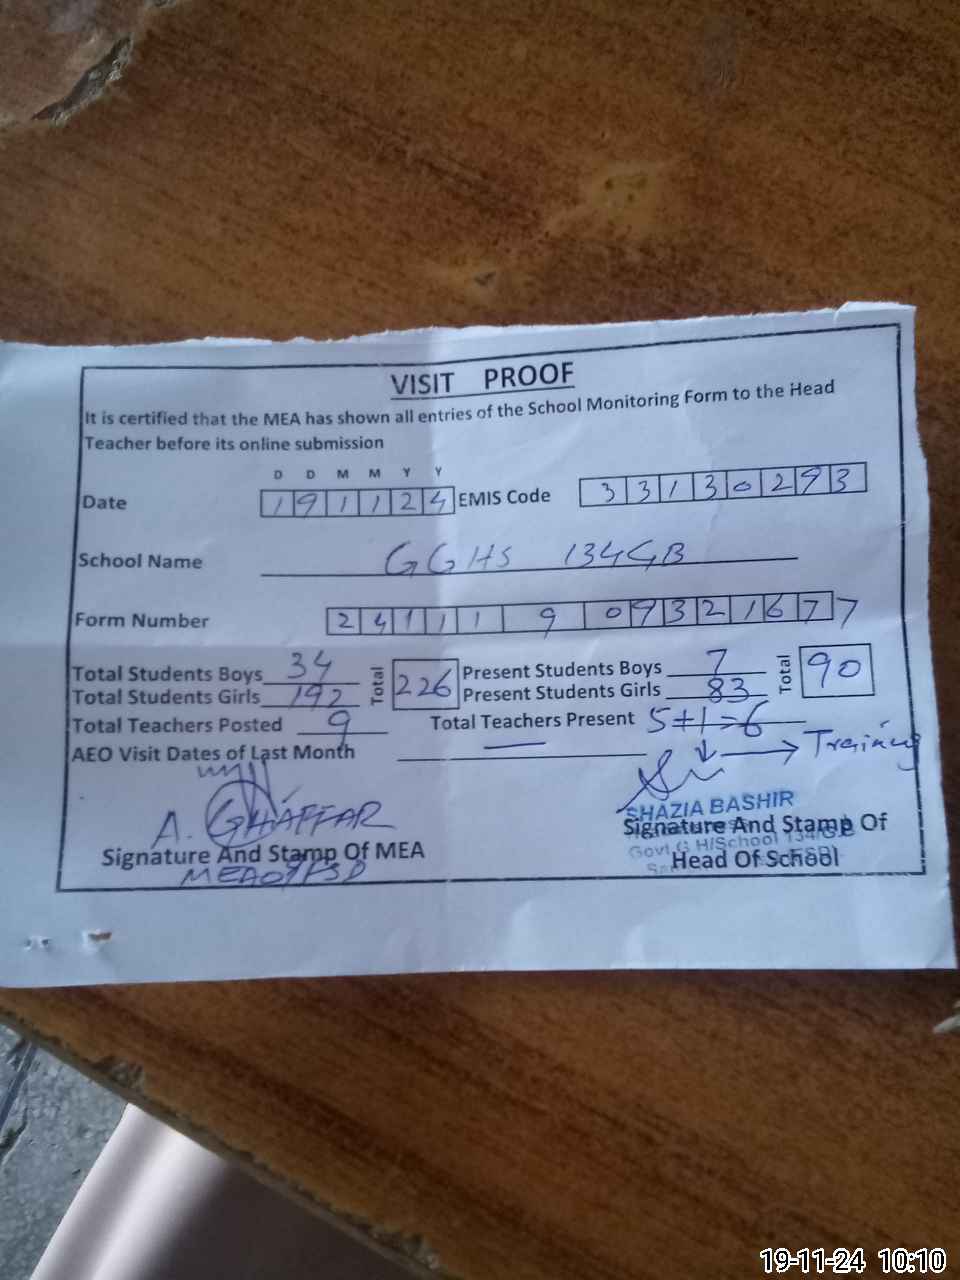 VISIT PROOF
It is certified that the MEA has shown all entries of the School Monitoring Form to the Head
Teacher before its online submission
D D M M Y Y
Date 191124 EMIS Code 33130293
School Name GGHS 134GB
Form Number 24111 9 09321677
Total Students Boys 34 Total 226 Present Students Boys 7 Total 90
Total Students Girls 192 Present Students Girls 83
Total Teachers Posted 9 Total Teachers Present 5+1=6
AEO Visit Dates of Last Month — ↓ → Training
A. GHAFFAR SHAZIA BASHIR
Signature And Stamp Of MEA Signature And Stamp Of
MEA07FSD Govt.G H/School 134/G.B
Head Of School
19-11-24 10:10